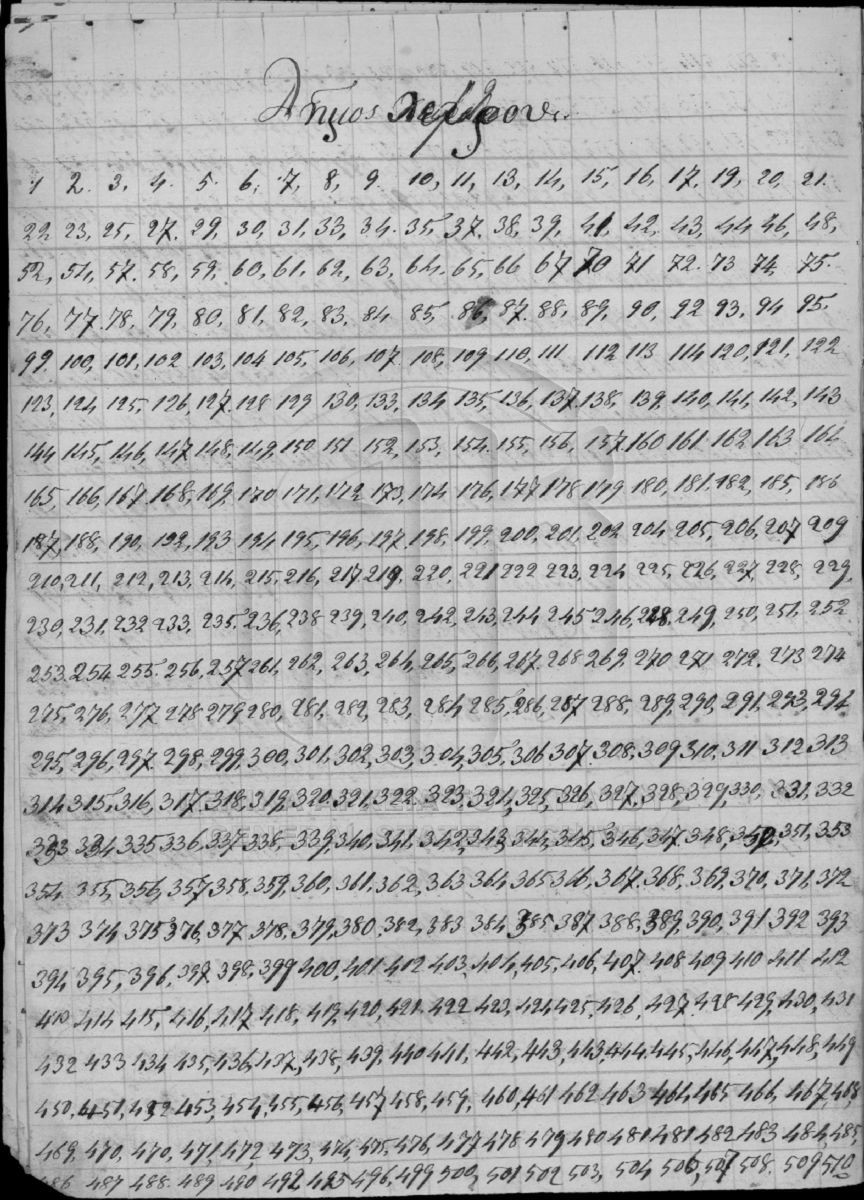 1 2. 3, 4. 5. 6, 7, 8, 9. 10, 11, 13, 14, 15, 16, 17, 19, 20, 21.
22 23, 25, 27. 29, 30, 31, 33, 34. 35, 37. 38, 39, 41, 42, 43, 44 46, 48,
52, 54, 57. 58, 59, 60, 61, 62, 63, 64. 65, 66 67 70 71 72. 73 74, 75.
76, 77. 78, 79, 80, 81, 82, 83, 84 85, 86, 87. 88, 89, 90, 92 93, 94 95.
99. 100, 101, 102 103, 104 105, 106, 107 108, 109 110, 111 112 113 114 120, 121, 122
123, 124 125, 126, 127. 128 129 130, 133, 134 135, 136, 137. 138, 139, 140, 141, 142, 143
144 145, 146, 147 148, 149, 150 151 152, 153, 154, 155, 156, 157. 160 161 162 163 164
165, 166, 167 168, 169, 170 171, 172 173, 174 176, 177 178 179 180, 181, 182, 185, 186
187, 188, 190, 192, 193 194 195, 196, 197. 198, 199, 200, 201, 202 204 205, 206, 207 209
210, 211, 212, 213, 214, 215, 216, 217 219, 220, 221 222 223, 224 225, 226, 227 228, 229,
230, 231, 232 233, 235, 236, 238 239, 240, 242, 243, 244 245 246, 248, 249, 250, 251, 252
253 254 255. 256, 257 261, 262, 263, 264, 265, 266, 267. 268 269. 270 271 272. 273 274
275, 276, 277 278 279 280, 281, 282, 283, 284 285, 286, 287 288, 289, 290, 291, 293, 294
295, 296, 297. 298, 299, 300, 301, 302, 303, 304, 305, 306 307. 308, 309 310, 311 312 313
314 315, 316, 317. 318, 319, 320, 321, 322. 323, 324, 325, 326, 327, 328, 329, 330, 331, 332
333 334 335 336, 337 338, 339, 340, 341, 342, 343, 344, 345, 346, 347 348, 350, 351, 353
354 355, 356, 357 358, 359, 360, 361, 362, 363 364 365 366, 367. 368, 369, 370, 371, 372
373 374 375 376, 377 378, 379, 380, 382, 383 384 385 387 388, 389, 390, 391 392 393
394 395, 396, 397 398, 399 400, 401 402 403, 404, 405, 406, 407. 408 409 410 411 412
413 414 415, 416, 417 418, 419, 420, 421, 422 423, 424 425, 426, 427 428 429, 430, 431
432 433 434 435, 436, 437, 438, 439, 440 441, 442, 443, 443, 444, 445, 446, 447, 448, 449
450, 451, 452 453, 454, 455, 456, 457 458, 459, 460, 461 462 463 464, 465 466, 467, 468,
469, 470, 470, 471, 472, 473, 474, 475, 476, 477 478 479 480 481 481 482 483 484, 485,
486 487 488. 489 490 492 495 496, 499 500, 501 502 503, 504 506, 507 508. 509 510